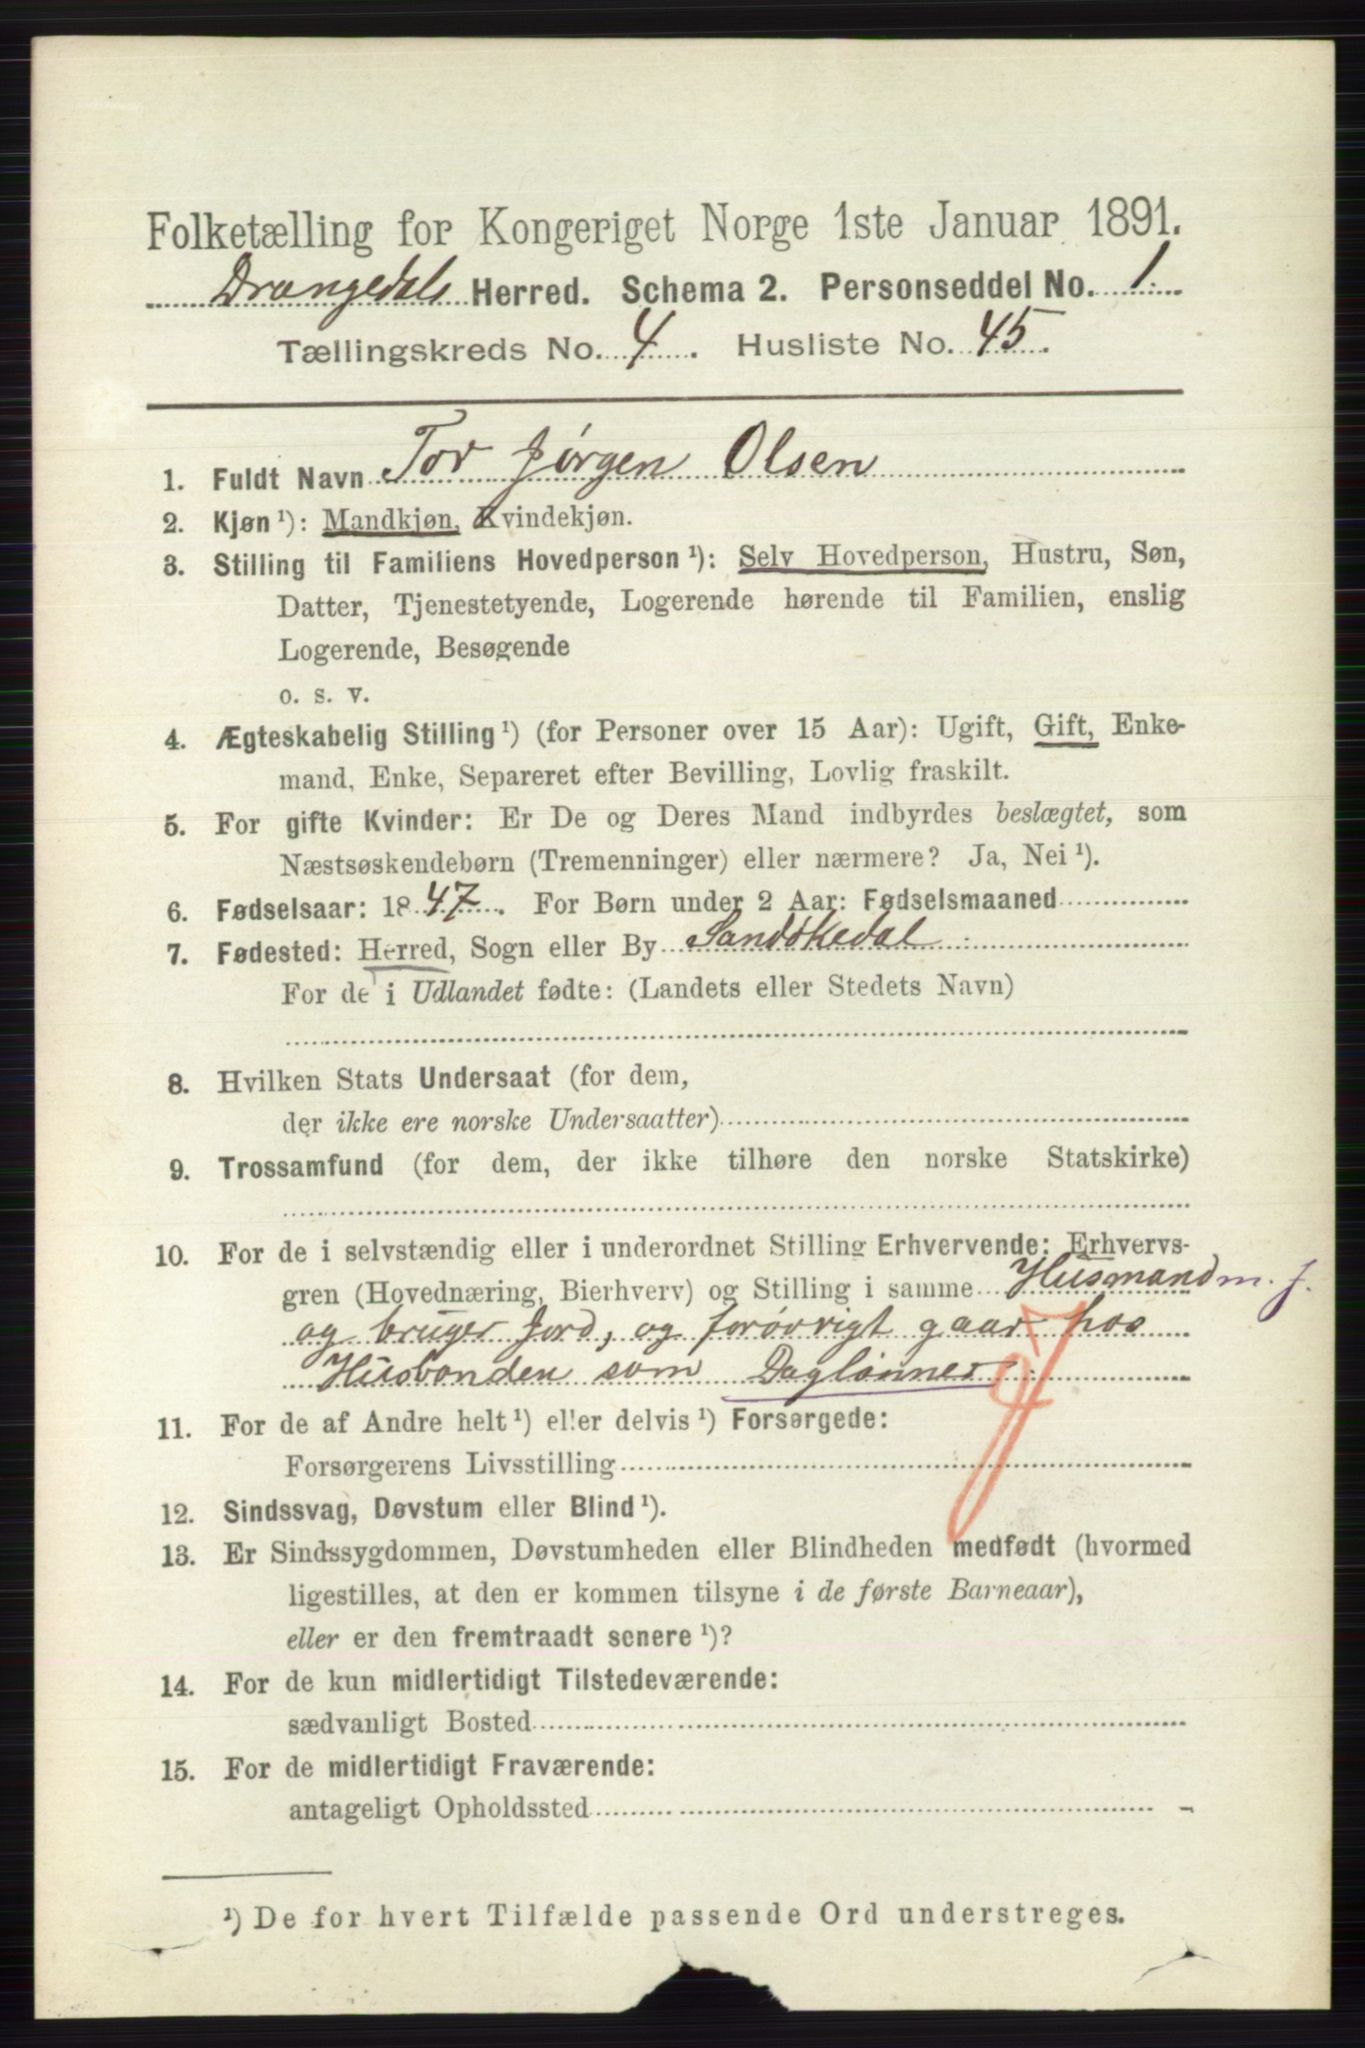 Folketælling for Kongeriget Norge 1ste Januar 1891.
Drangedals Herred. Schema 2. Personseddel No. 1.
Tællingskreds No. 4. Husliste No. 45.
1. Fuldt Navn Tor Jørgen Olsen
2. Kjøn ¹): Mandkjøn, Kvindekjøn.
3. Stilling til Familiens Hovedperson ¹): Selv Hovedperson, Hustru, Søn,
Datter, Tjenestetyende, Logerende hørende til Familien, enslig
Logerende, Besøgende
o. s. v.
4. Ægteskabelig Stilling ¹) (for Personer over 15 Aar): Ugift, Gift, Enke-
mand, Enke, Separeret efter Bevilling, Lovlig fraskilt.
5. For gifte Kvinder: Er De og Deres Mand indbyrdes beslægtet, som
Næstsøskendebørn (Tremenninger) eller nærmere? Ja, Nei ¹).
6. Fødselsaar: 1847. For Børn under 2 Aar: Fødselsmaaned
7. Fødested: Herred, Sogn eller By Sandøkedal
For de i Udlandet fødte: (Landets eller Stedets Navn)
8. Hvilken Stats Undersaat (for dem,
der ikke ere norske Undersaatter)
9. Trossamfund (for dem, der ikke tilhøre den norske Statskirke)
10. For de i selvstændig eller i underordnet Stilling Erhvervende: Erhvervs-
gren (Hovednæring, Bierhverv) og Stilling i samme Husmand m. j.
og bruger Jord, og forøvrigt gaar hos
Husbonden som Daglønner
11. For de af Andre helt ¹) eller delvis ¹) Forsørgede:
Forsørgerens Livsstilling
12. Sindssvag, Døvstum eller Blind ¹).
13. Er Sindssygdommen, Døvstumheden eller Blindheden medfødt (hvormed
ligestilles, at den er kommen tilsyne i de første Barneaar),
eller er den fremtraadt senere ¹)?
14. For de kun midlertidigt Tilstedeværende:
sædvanligt Bosted
15. For de midlertidigt Fraværende:
antageligt Opholdssted
¹) De for hvert Tilfælde passende Ord understreges.